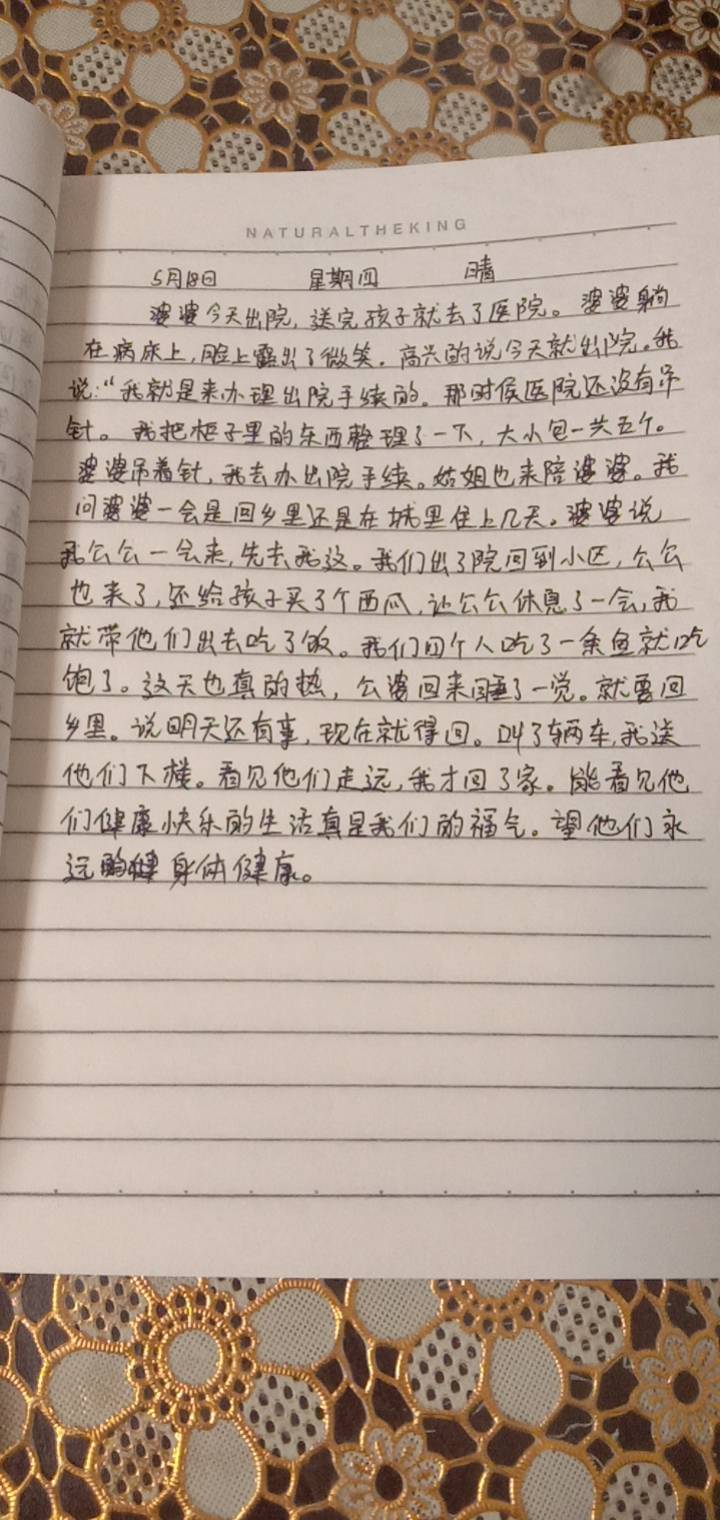 NATURALTHEKING
5月18日 星期四 晴
婆婆今天出院,送完孩子就去了医院。婆婆躺
在病床上,脸上露出了微笑。高兴的说今天就出院。我
说:“我就是来办理出院手续的。那时侯医院还没有吊
针。我把柜子里的东西整理了一下,大小包一共五个。
婆婆吊着针,我去办出院手续。姑姐也来陪婆婆。我
问婆婆一会是回乡里还是在城里住上几天。婆婆说
我公公一会来,先去我这。我们出了院回到小区,公公
也来了,还给孩子买了个西瓜,让公公休息了一会,我
就带他们出去吃了饭。我们四个人吃了一条鱼就吃
饱了。这天也真的热,公婆回来睡了一觉。就要回
乡里。说明天还有事,现在就得回。叫了辆车,我送
他们下楼。看见他们走远,我才回了家。能看见他
们健康快乐的生活真是我们的福气。望他们永
远 身体健康。